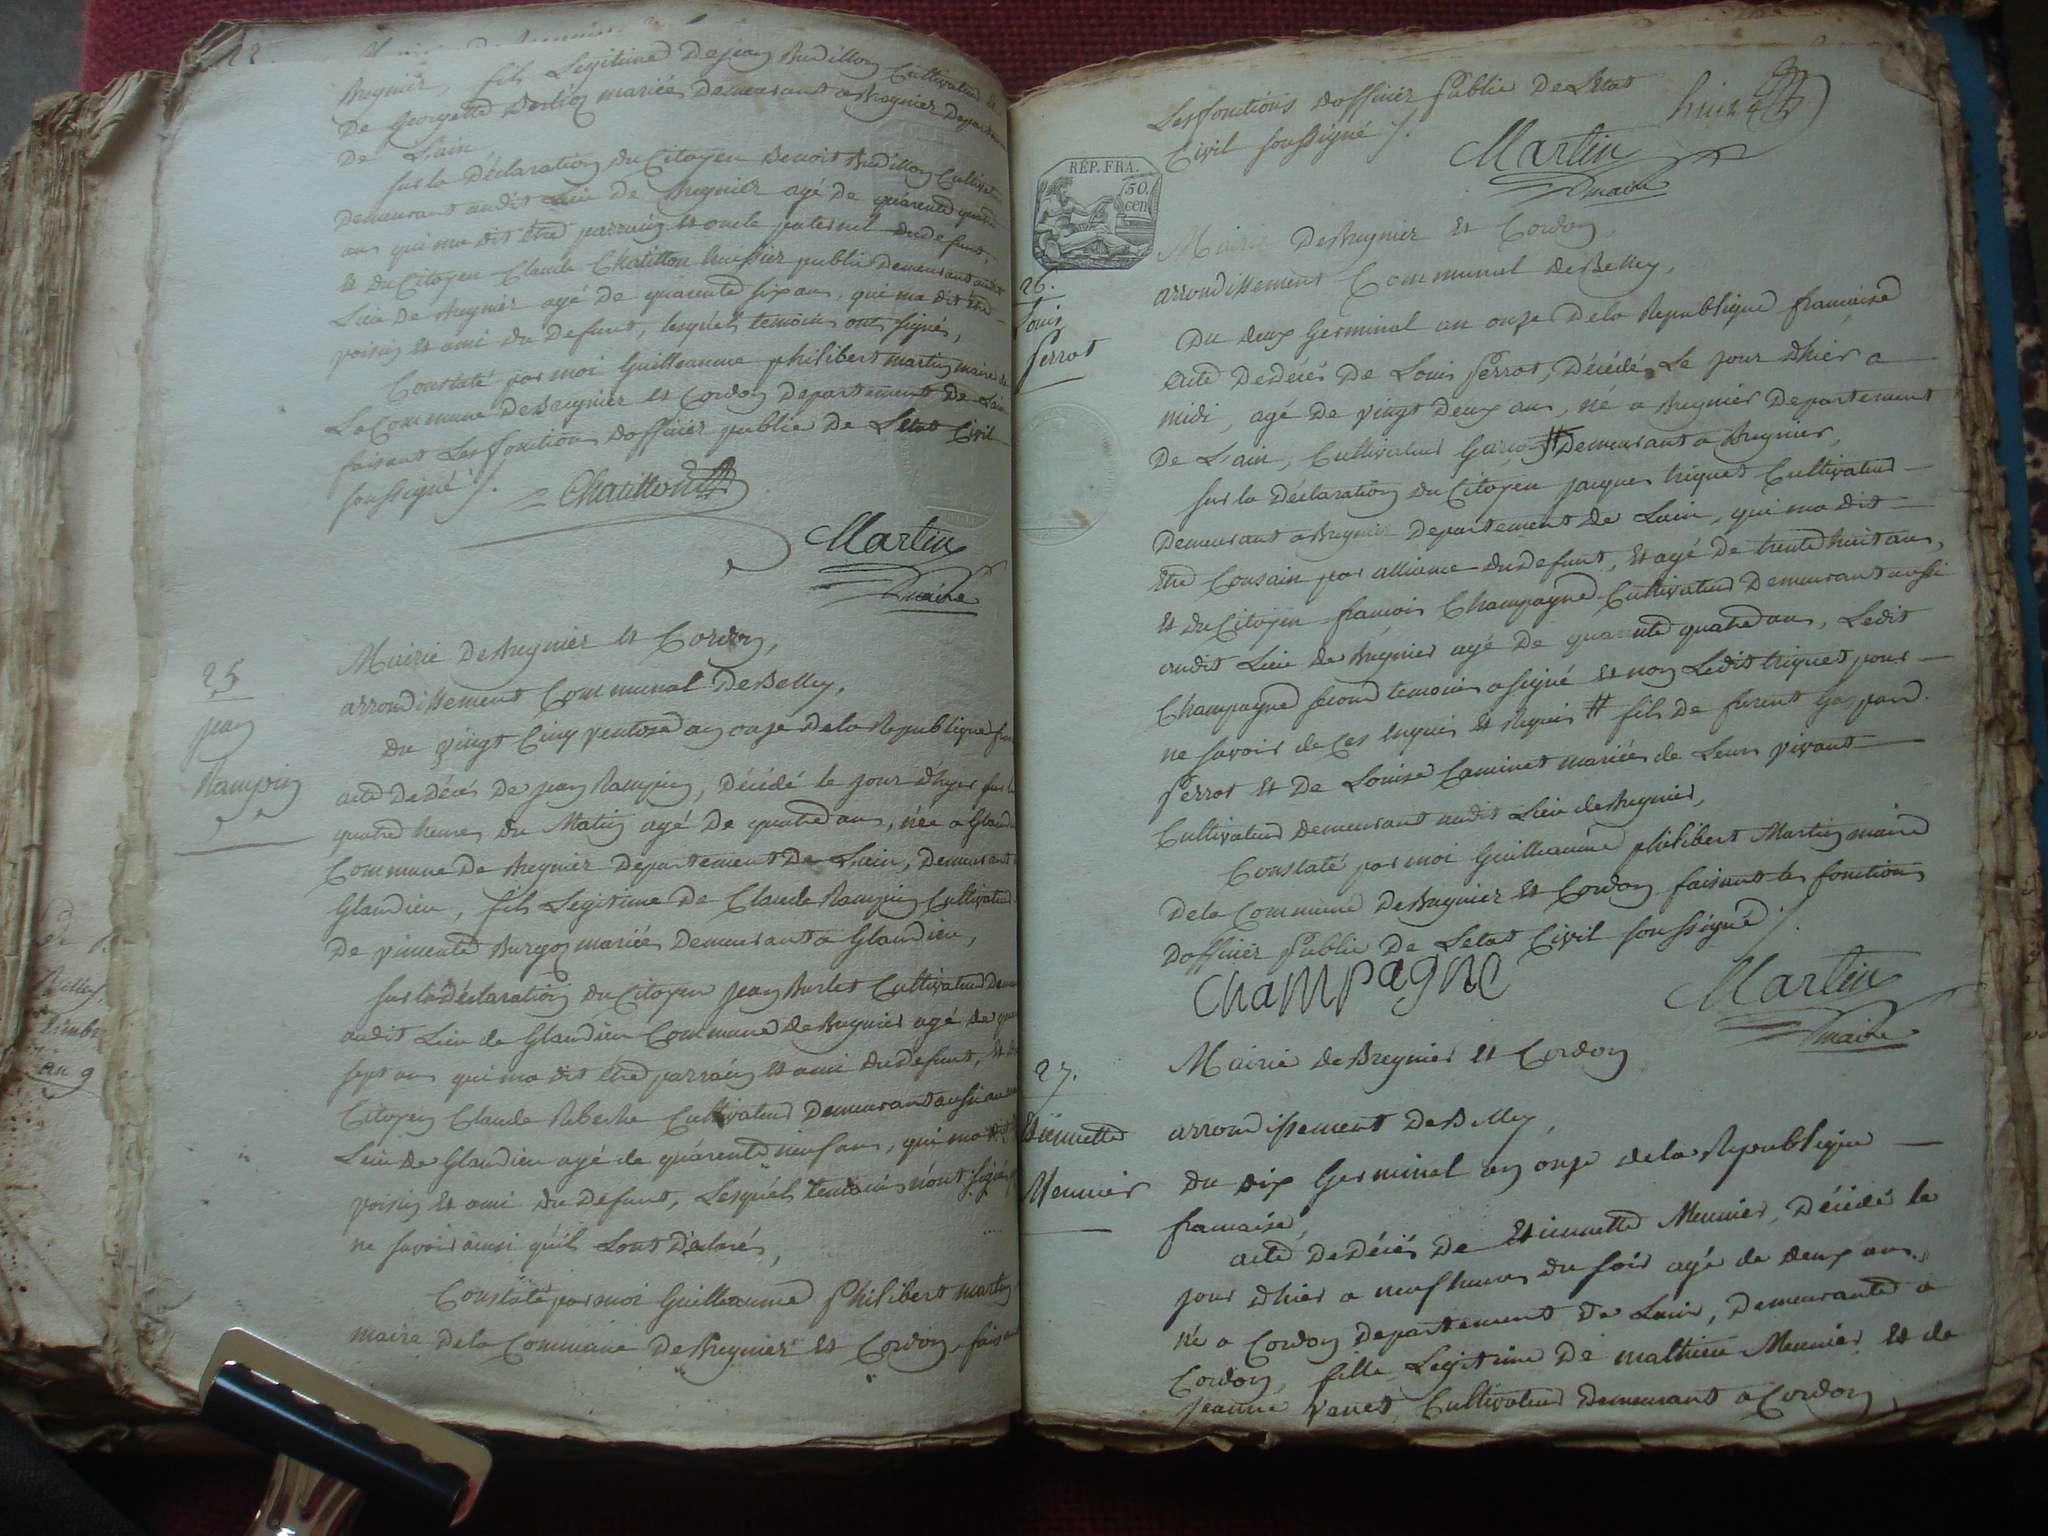 Bregnier, fils Legitime De jean Budillon Cultivateur et
De Georgette mariés Demeurant a Bregnier Departement
De Lain,
sur la Déclaration du Citoyen Benoit Budillon Cultivat
Demeurant audit Lieu de Bregnier agé De quarente quatre
ans qui ma dit Etre parrain et oncle paternel du defunt,
Et du Citoyen Claude Chatillon huissier public Demeurant audit
Lieu de Bregnier agé De quarente six ans, qui ma dit Etre
voisin Et ami du Defunt, lesquels temoins ont signés,
Constaté par moi Guilleaume philibert martin maire de
La Commune De Bregnier et Cordon Departement De Lain
faisant Les fonctions Dofficier public De Letat Civil
soussigné /.
Chatillon
Martin
maire
25
jean
Rampin
Mairie De Bregnier et Cordon,
arrondissement Communal De Belley,
du vingt Cinq ventose an onze De la Republique fran
acte De Décés De jean Rampin, Décédé le jour d'hyer sur le
quatre heures du Matin agé De quatre ans, née a Glandieu
Commune De Bregnier Departement De Lain, Demeurant a
Glandieu, fils Legitime De Claude Rampin Cultivateur
De vincente Burgoz mariés Demeurant a Glandieu,
sur la Déclaration du Citoyen jean Burlet Cultivateur Demeu
audit Lieu de Glandieu Commune de Bregnier agé de
sept ans qui ma dit Etre parrain et ami du Defunt, Et du
Citoyen Claude Cultivateur Demeurant aussi au
Lieu De Glandieu agé de quarente neuf ans, qui ma dit
voisin Et ami du Defunt, Lesquels temoins n'ont signés
ne savoir ainsi quils Lont Declarés,
Constaté par moi Guilleaume Philibert martin
maire De la Commune De Bregnier et Cordon faisant
Les fonctions Dofficier Public De Letat
Civil soussigné /.
Martin
maire
RÉP. FRA.
50.
cen.
26.
Louis
Perrot
Mairie De Bregnier et Cordon,
arrondissement Communal de Belley,
Du deux Germinal an onze De la Republique francaise
acte De Décés De Louis Perrot, Décédé Le jour d'hier a
midi, agé De vingt deux ans, né a Bregnier Departement
De Lain, Cultivateur Garçon # Demeurant a Bregnier,
sur la Déclaration du Citoyen jacques triquet Cultivateur
Demeurant a Bregnier Departement De Lain, qui ma dit
Etre Cousain par alliance du defunt, Et agé De trente huit ans,
Et du Citoyen francois Champagne Cultivateur Demeurant aussi
audit Lieu de Bregnier agé De quarente quatre ans, Ledit
Champagne second temoin a signé et non Ledit triquet pour
ne savoir de ces enquis Et Requis # fils De furent Gaspard
Perrot Et De Louise Caminet mariés de Leurs vivant
Cultivateur demeurant audit Lieu de Bregnier,
Constaté par moi Guilleaume philibert Martin maire
De la Commune De Bregnier Et Cordon faisant les fonctions
Dofficier Public De Letat Civil soussigné /.
CHAMPAGNE
Martin
maire
27.
Etiennette
Meunier
Mairie de Bregnier et Cordon
arrondissement De Belley,
Du dix Germinal an onze de la Republique
francaise,
acte De Décés De Etiennette Meunier, Décédé le
jour d'hier a neuf heures du soir agé de deux ans,
né a Cordon Departement De Lain, Demeurante a
Cordon, fille Legitime De mathieu Meunier Et de
jeanne vanet Cultivateur Demeurant a Cordon,